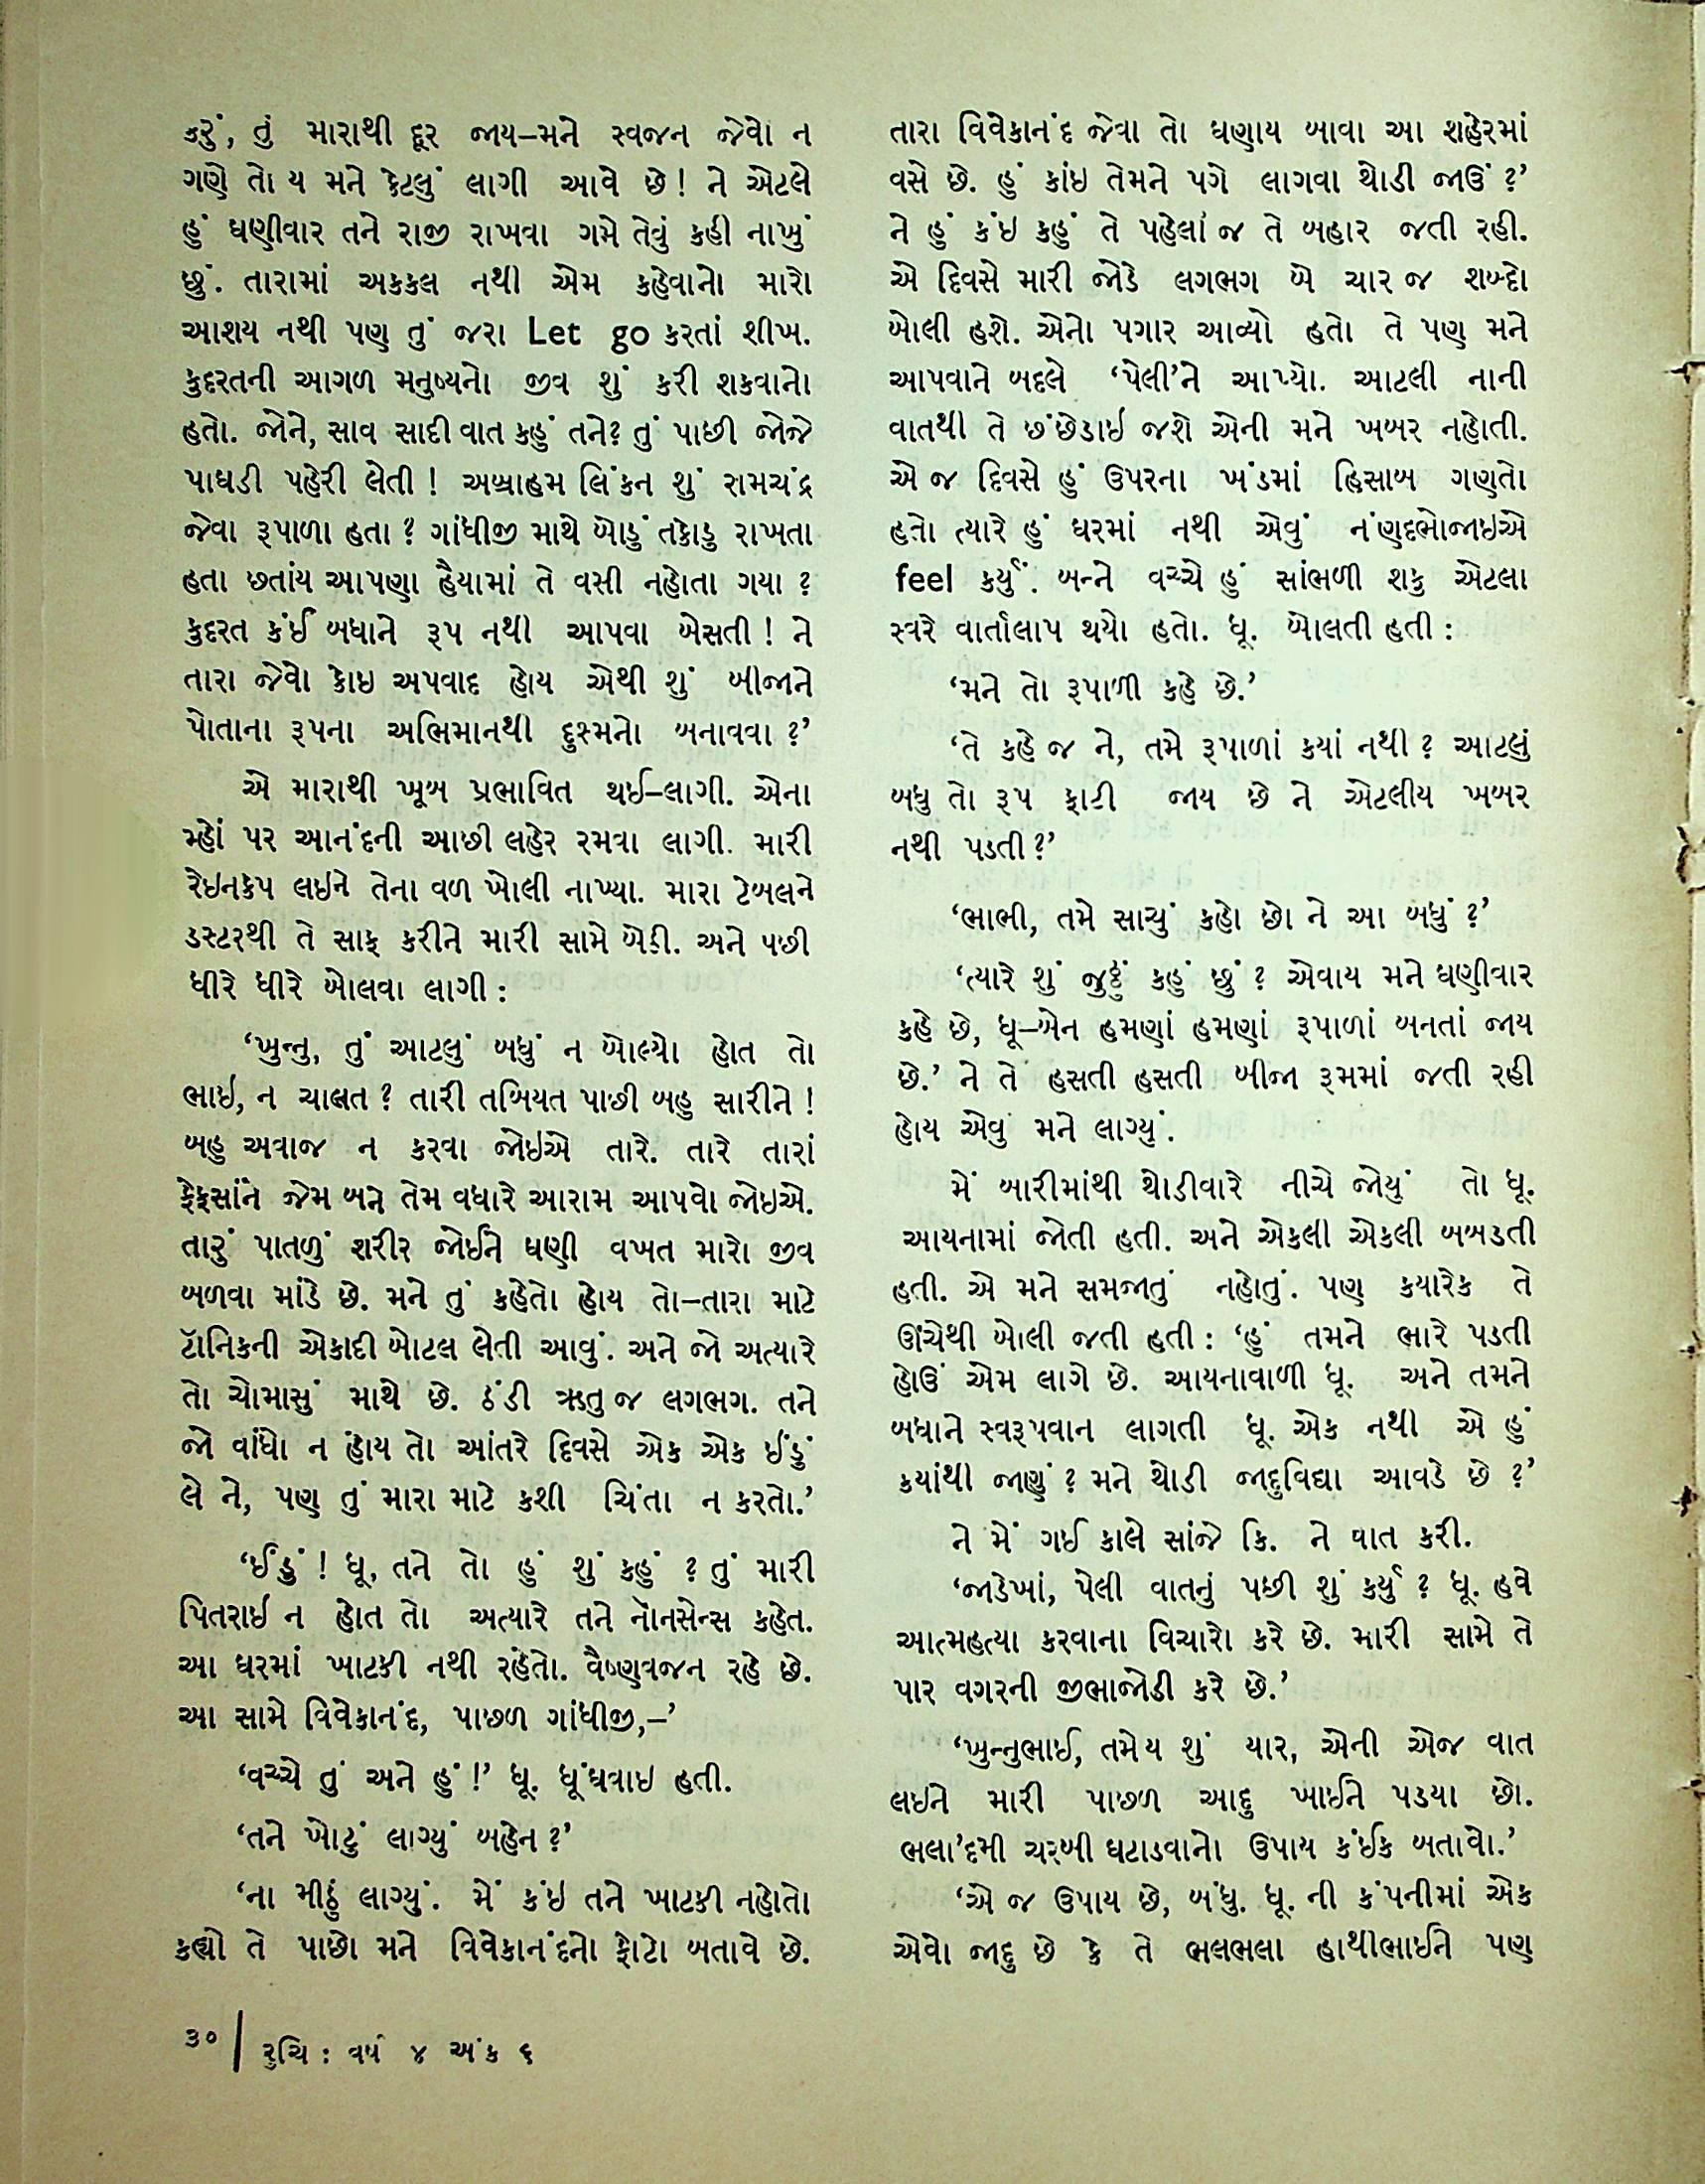 કરું, તું મારાથી દૂર જાય–મને સ્વજન જેવો ન
ગણે તો ય મને કેટલું લાગી આવે છે! ને એટલે
હું ઘણીવાર તને રાજી રાખવા ગમે તેવું કહી નાખું
છું. તારામાં અકકલ નથી એમ કહેવાનો મારો
આશય નથી પણ તું જરા Let go કરતાં શીખ.
કુદરતની આગળ મનુષ્યનો જીવ શું કરી શકવાનો
હતો. જોને, સાવ સાદી વાત કહું તને? તું પાછી જોજે
પાઘડી પહેરી લેતી! અબ્રાહમ લિંકન શું રામચંદ્ર
જેવા રૂપાળા હતા? ગાંધીજી માથે બોડું તકોડુ રાખતા
હતા છતાંય આપણા હૈયામાં તે વસી નહોતા ગયા?
કુદરત કંઈ બધાને રૂપ નથી આપવા બેસતી! ને
તારા જેવો કોઇ અપવાદ હોય એથી શું બીજાને
પોતાના રૂપના અભિમાનથી દુશ્મનો બનાવવા?’
એ મારાથી ખૂબ પ્રભાવિત થઈ–લાગી. એના
મ્હોં પર આનંદની આછી લહેર રમવા લાગી. મારી
રેઇનકેપ લઇને તેના વળ ખોલી નાખ્યા. મારા ટેબલને
ડસ્ટરથી તે સાફ કરીને મારી સામે બેઠી. અને પછી
ધીરે ધીરે બોલવા લાગી:
‘ખુન્નુ, તું આટલું બધું ન બોલ્યો હોત તો
ભાઇ, ન ચાલત? તારી તબિયત પાછી બહુ સારીને!
બહુ અવાજ ન કરવા જોઇએ તારે. તારે તારાં
ફેફસાંને જેમ બને તેમ વધારે આરામ આપવો જોઇએ.
તારું પાતળું શરીર જોઈને ઘણી વખત મારો જીવ
બળવા માંડે છે. મને તું કહેતો હોય તો–તારા માટે
ટૉનિકની એકાદી બોટલ લેતી આવું. અને જો અત્યારે
તો ચોમાસું માથે છે. ઠંડી ઋતુ જ લગભગ. તને
જો વાંધો ન હોય તો આંતરે દિવસે એક એક ઈંડું
લે ને, પણ તું મારા માટે કશી ચિંતા ન કરતો.’
‘ઈંડું! ધૂ, તને તો હું શું કહું? તું મારી
પિતરાઇ ન હોત તો અત્યારે તને નૉનસેન્સ કહેત.
આ ઘરમાં ખાટકી નથી રહેતો. વૈષ્ણવજન રહે છે.
આ સામે વિવેકાનંદ, પાછળ ગાંધીજી,–’
‘વચ્ચે તું અને હું!’ ધૂ. ધૂંધવાઇ હતી.
‘તને ખોટું લાગ્યું બહેન?’
‘ના મીઠું લાગ્યું. મેં કંઇ તને ખાટકી નહોતો
કહ્યો તે પાછો મને વિવેકાનંદનો ફોટો બતાવે છે.
તારા વિવેકાનંદ જેવા તો ઘણાય બાવા આ શહેરમાં
વસે છે. હું કાંઇ તેમને પગે લાગવા થોડી જાઉં?’
ને હું કંઇ કહું તે પહેલાં જ તે બહાર જતી રહી.
એ દિવસે મારી જોડે લગભગ બે ચાર જ શબ્દો
બોલી હશે. એનો પગાર આવ્યો હતો તે પણ મને
આપવાને બદલે ‘પેલી’ને આપ્યો. આટલી નાની
વાતથી તે છંછેડાઇ જશે એની મને ખબર નહોતી.
એ જ દિવસે હું ઉપરના ખંડમાં હિસાબ ગણતો
હતો ત્યારે હું ઘરમાં નથી એવું નંણદભોજાઇએ
feel કર્યું. બન્ને વચ્ચે હું સાંભળી શકુ એટલા
સ્વરે વાર્તાલાપ થયો હતો. ધૂ. બોલતી હતી:
‘મને તો રૂપાળી કહે છે.’
‘તે કહે જ ને, તમે રૂપાળાં કયાં નથી? આટલું
બધુ તો રૂપ ફાટી જાય છે ને એટલીય ખબર
નથી પડતી?’
‘ભાભી, તમે સાચું કહો છો ને આ બધું?’
‘ત્યારે શું જુઠ્ઠું કહું છું? એવાય મને ઘણીવાર
કહે છે, ધૂ–બેન હમણાં હમણાં રૂપાળાં બનતાં જાય
છે.’ ને તે હસતી હસતી બીજા રૂમમાં જતી રહી
હોય એવુ મને લાગ્યું.
મેં બારીમાંથી થોડીવારે નીચે જોયું તો ધૂ.
આયનામાં જોતી હતી. અને એકલી એકલી બબડતી
હતી. એ મને સમજાતું નહોતું. પણ કયારેક તે
ઊંચેથી બોલી જતી હતી: ‘હું તમને ભારે પડતી
હોઉં એમ લાગે છે. આયનાવાળી ધૂ. અને તમને
બધાને સ્વરૂપવાન લાગતી ધૂ. એક નથી એ હું
કયાંથી જાણું? મને થોડી જાદુવિદ્યા આવડે છે?’
ને મેં ગઈ કાલે સાંજે કિ. ને વાત કરી.
‘જાડેખાં, પેલી વાતનું પછી શું કર્યું? ધૂ. હવે
આત્મહત્યા કરવાના વિચારો કરે છે. મારી સામે તે
પાર વગરની જીભાજોડી કરે છે.’
‘ખુન્નુભાઈ, તમેય શું યાર, એની એજ વાત
લઇને મારી પાછળ આદુ ખાઈને પડયા છો.
ભલા’દમી ચરબી ઘટાડવાનો ઉપાય કંઈક બતાવો.’
‘એ જ ઉપાય છે, બંધુ. ધૂ. ની કંપનીમાં એક
એવો જાદુ છે કે તે ભલભલા હાથીભાઈને પણ
૩૦ / રુચિ : વર્ષ ૪ અંક ૬